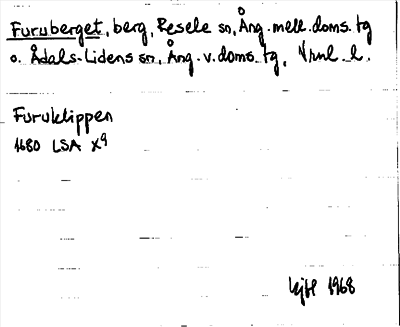 Furuberget, berg, Resele sn, Ång. mell. doms. tg
o. Ådals-Lidens sn, Ång. v. doms. tg, Vrnl. l.
Furuklippen
1680 LSA X9
1968